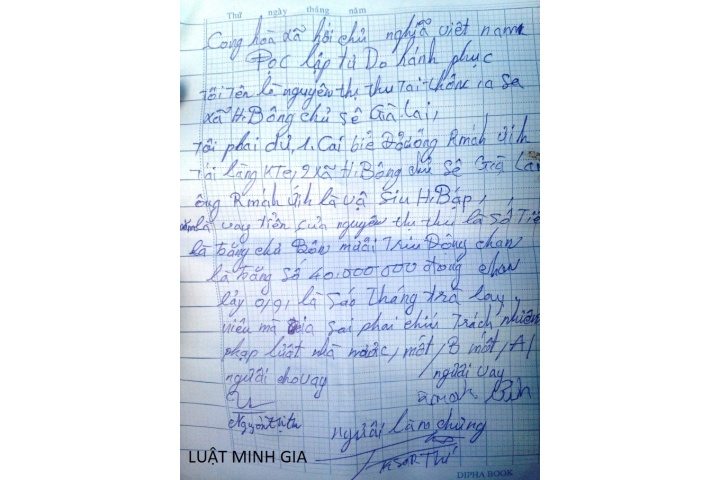 Thứ ngày tháng năm
Cong hoà xã hôi chủ nghĩa việt nam
Đọc lập tử Do hánh phục
tôi Tên là nguyên thị thu Tai thôn ia Sa
xã H.Bông chủ Sê Gia.lai,
Tôi phai dủ, 1. Cai biê Rmah
Tái làng KTe, 2 Xã H.Bông chủ Sê Gia Lai
ông Rmah là vợ Siu H.Báp,
là vay tiền của nguyên thị thu là Số Tiê
là băng chủ Bôn mươi Triu Đông chan
là băng Số 40.000.000 đông chan
lảy 0,9, là Sáo Tháng trả lay,
niêu mà Sai phai chiu Trách nhiêm
phạp luât nhà nước, môt, B môt, A
người cho vay người vay
Nguyễn thị thu Rmah
người làm chứng
KSOR Thư
LUẬT MINH GIA
DIPHA BOOK